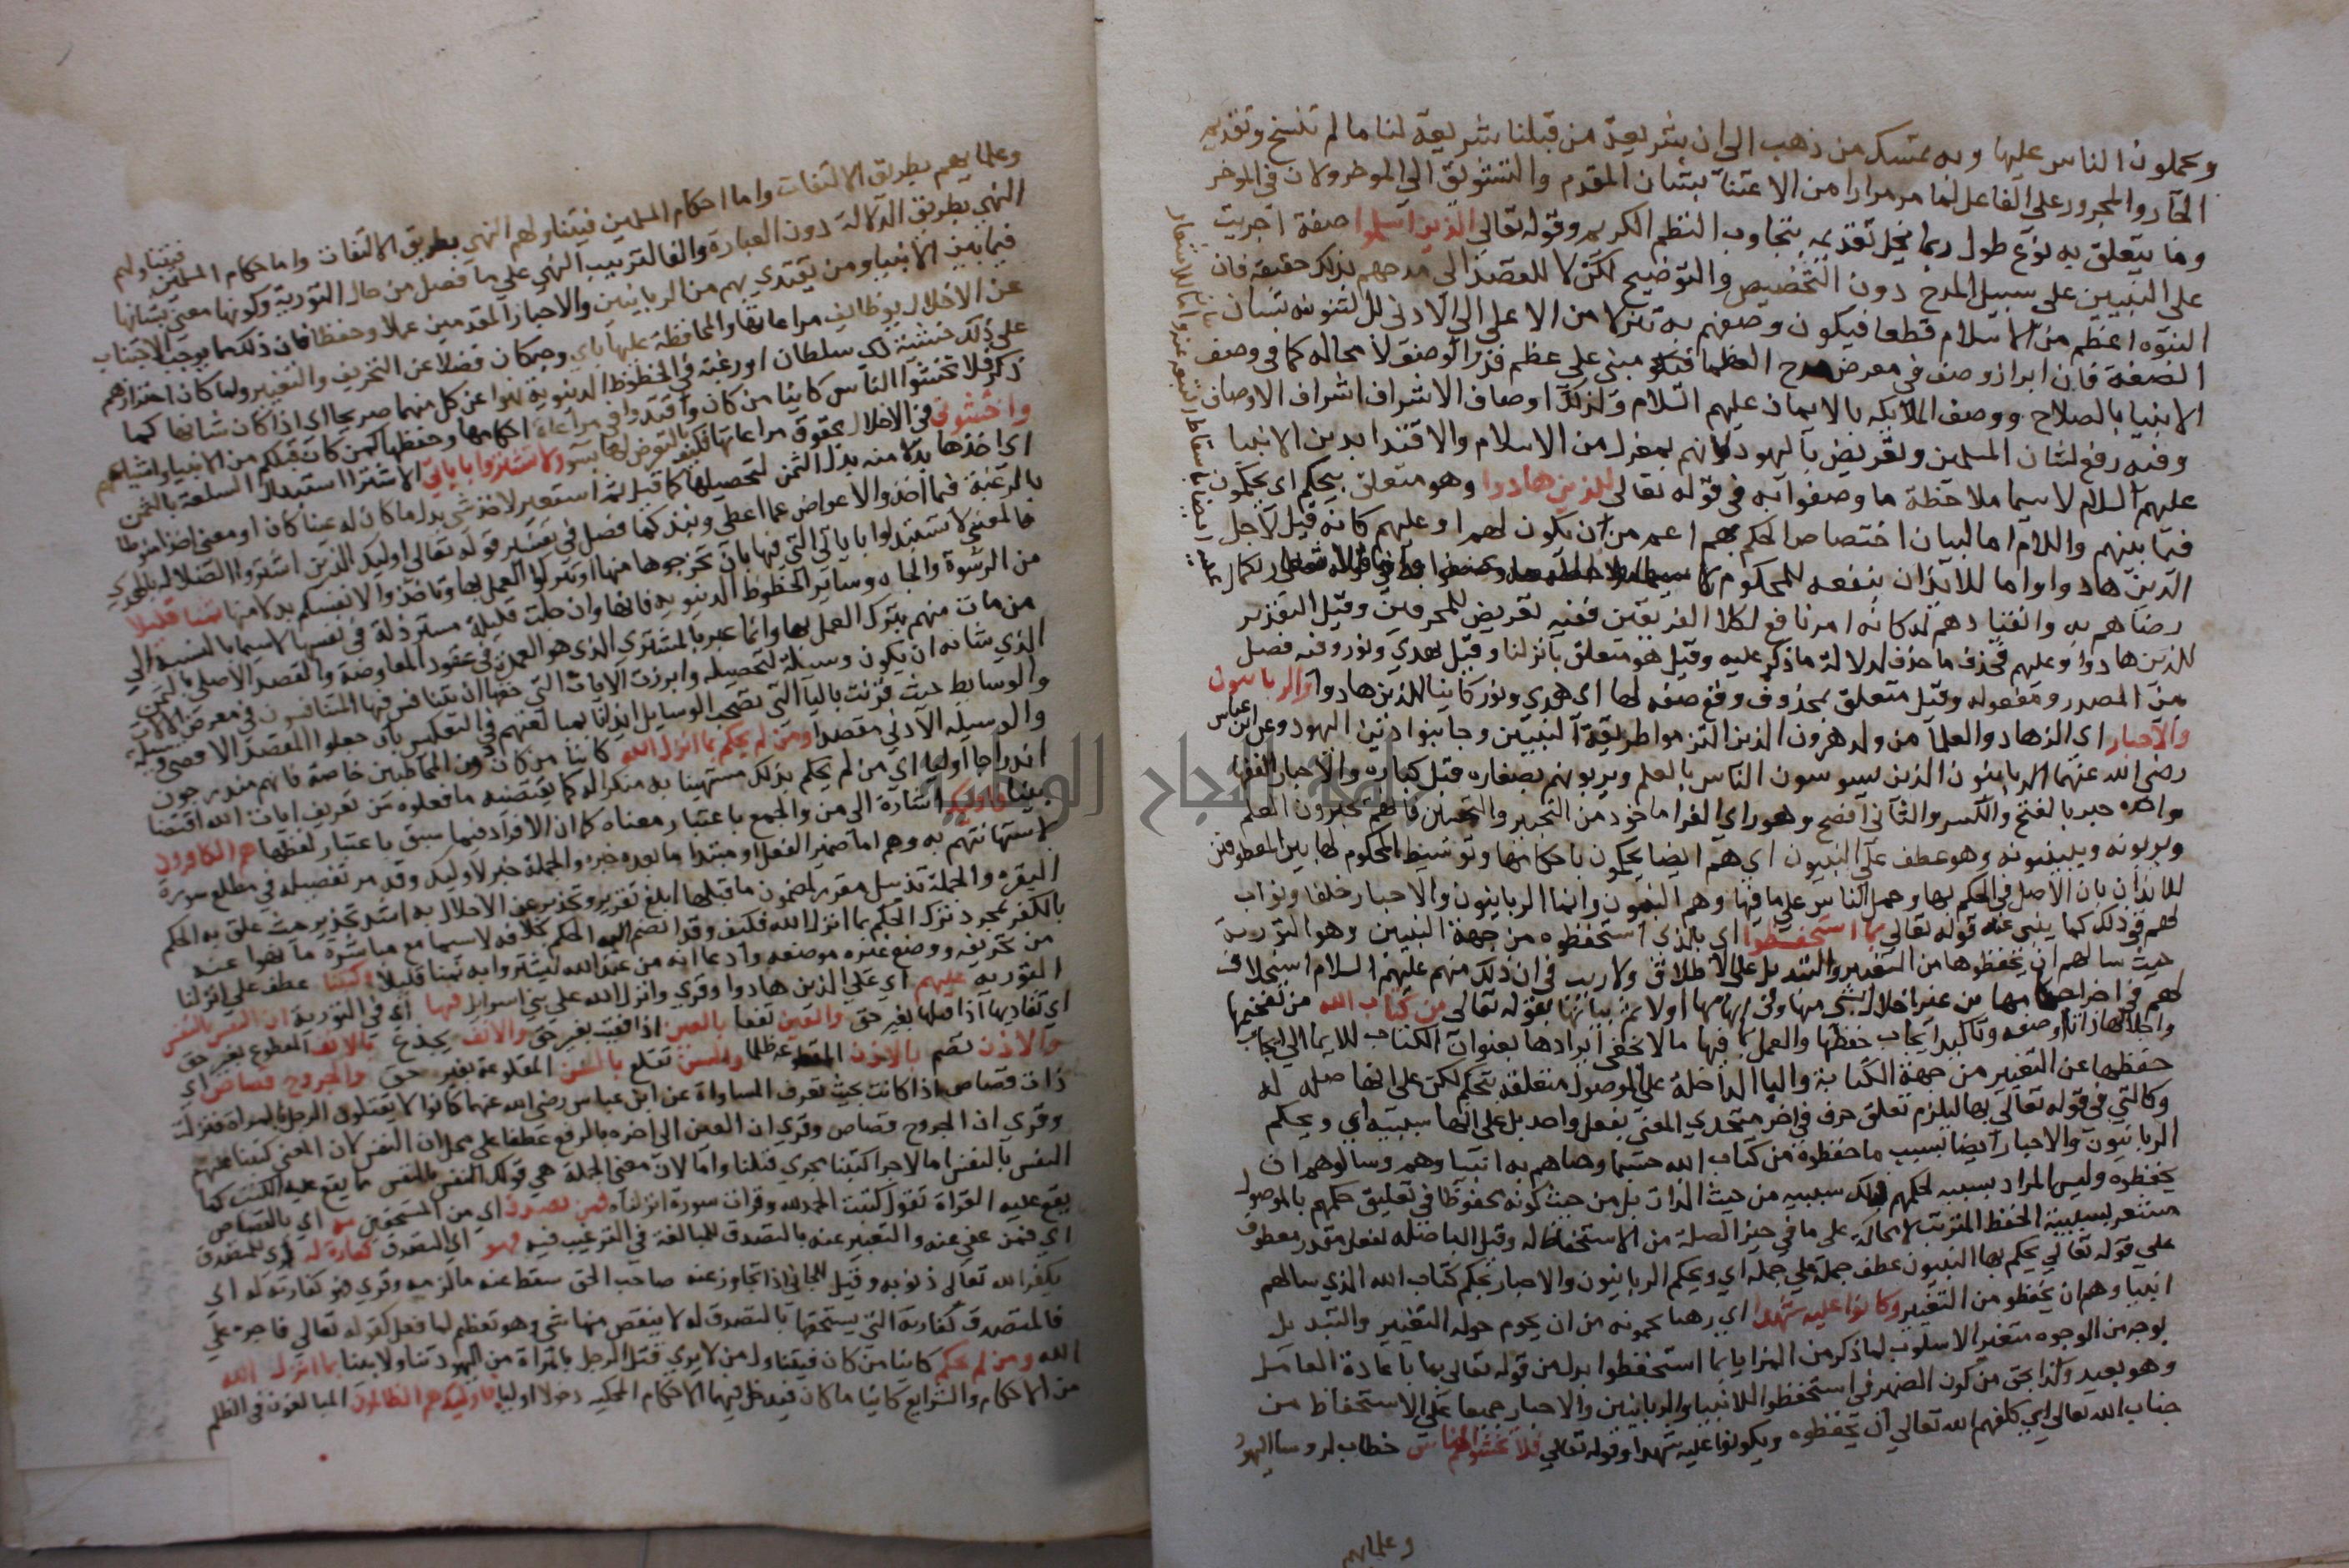 ويحملون الناس عليها وبه تمسك من ذهب الى ان شريعة من قبلنا شريعة لنا ما لم تنسخ وتقديم
الجار والمجرور على الفاعل لما مر مرارا من الاعتنا بشان المقدم والتشويق الى الموخر ولان في الموخر
وما يتعلق به نوع طول ربما يخل تقديمه بتجاوب النظم الكريم وقوله تعالى الذين اسلموا صفة اجريت
على النبيين على سبيل المدح دون التخصيص والتوضيح لكن لا للقصد الى مدحهم بذلك حقيقة فان
النبوه اعظم من الاسلام قطعا فيكون وصفهم به تنزلا من الاعلى الى الادنى بل لتنويه شان
الصفة فان ابراز وصف في معرض مدح العظما مبنى على عظم قدر الوصف لا محاله كما في وصف
الانبيا بالصلاح ووصف الملايكه بالايمان عليهم السلام ولذلك اوصاف الاشراف اشراف الاوصاف
وفيه رفع لشان المسلمين وتعريض باليهود وانهم بمعزل من الاسلام والاقتدا بدين الانبيا
عليهم السلام لا سيما ملاحظة ما وصفوا به في قوله تعالى للذين هادوا وهو متعلق بيحكم اي يحكمون
فيما بينهم واللام اما لبيان اختصاص الحكم بهم اعم من ان يكون لهم او عليهم كانه قيل لاجل
الذين هادوا واما للايذان بنفعه للمحكوم لكمال
رضاهم به وانقيادهم له كانه امر نافع لكلا الفريقين ففيه تعريض للمحرفين وقيل التقدير
للذين هادوا وعليهم فحذف ما حذف لدلالة ما ذكر عليه وقيل هو متعلق بانزلنا وقيل بهدي ونور وفيه فصل
بين المصدر ومعموله وقيل متعلق بمحذوف وقع صفه لها اي هدي ونور كاينا للذين هادوا والربانيون
والاحبار اي الزهاد والعلما من ولد هرون الذين التزموا طريقة النبيين وجانبوا دين اليهود وعن ابن عباس
رضي الله عنهما الربانيون الذين يسوسون الناس بالعلم ويربونهم بصغاره قبل كباره والاحبار الفقها
واحده حبر بالفتح والكسر والثاني افصح وهو راي الفرا ماخوذ من التحبير والتحسين فانهم يحبرون العلم
ويزينونه ويبينونه وهو عطف على النبيون اي هم ايضا يحكمون باحكامها وتوسيط المحكوم لهم بين المعطوفين
للايذان بان الاصل في الحكم بها وحمل الناس على ما فيها وهم النبيون وانما الربانيون والاحبار خلفا ونواب
لهم في ذلك كما ينبي عنه قوله تعالى بما استحفظوا اي بالذي استحفظوه من جهة النبيين وهو التوريه
حيث سالهم ان يحفظوها من التغيير والتبديل على الاطلاق ولا ريب في ان ذلك منهم عليهم السلام استخلاف
لهم في اجرا احكامها من غير اخلال بشي منها وفي ابهامها اولا ثم بيانها بقوله تعالى من كتاب الله من تفخيمها
واجلالها ذاتا وصفه وتاكيد ايجاب حفظها والعمل بما فيها ما لا يخفى وايرادها بعنوان الكتاب للايما الى ايجاب
حفظها عن التغيير من جهة الكتابة والبا الداخلة على الموصول متعلقه بيحكم لكن على انها صله له
وكالتي في قوله تعالى بها ليلزم تعلق حرفي جر متحدي المعنى بفعل واحد بل على انها سببيه اي ويحكم
الربانيون والاحبار ايضا بسبب ما حفظوه من كتاب الله حسبما وصاهم به انبياوهم وسالوهم ان
يحفظوه وليس المراد بسببيه لحكمهم ذلك سببيه من حيث الذات بل من حيث كونه محفوظا فان تعليق حكمهم بالموصول
مشعر بسببية الحفظ المترتب لا محاله على ما في حيز الصلة من الاستحفاظ له وقيل البا صله لفعل مقدر معطوف
على قوله تعالى يحكم بها النبيون عطف جملة على جمله اي ويحكم الربانيون والاحبار بحكم كتاب الله الذي سالهم
انبياوهم ان يحفظوه من التغيير وكانوا عليه شهدا اي رقبا يحمونه من ان يحوم حوله التغيير والتبديل
بوجه من الوجوه فتغيير الاسلوب لما ذكر من المزايا بما استحفظوا بدل من قوله تعالى بها باعادة العامل
وهو بعيد وكذا تجويز كون الضمير في استحفظوا للانبيا والربانيين والاحبار جميعا على ان الاستحفاظ من
جناب الله تعالى اي كلفهم الله تعالى ان يحفظوه ويكونوا عليه شهدا وقوله تعالى فلا تخشوا الناس خطاب لروسا اليهود
وعلمايهم
وعلمايهم بطريق الالتفات واما احكام المسلمين فيتناولهم النهي بطريق الالتفات واما حكام المسلمين فيتناولهم
النهي بطريق الدلالة دون العبارة والفا لترتيب النهي على ما فصل من حال التورية وكونها معتنى بشانها
فيما بين الانبيا ومن يقتدي بهم من الربانيين والاحبار المقدمين عملا وحفظا فان ذلك مما يوجب الاجتناب
عن الاخلال بوظايف مراعاتها والمحافظة عليها باي وجه كان فضلا عن التحريف والتغيير ولما كان اجتراوهم
على ذلك خشية ذي سلطان او رغبة في الحظوظ الدنيوية نهوا عن كل منهما صريحا اي اذا كان شانها كما
ذكر فلا تخشوا الناس كاينا من كان واقتدوا في مراعاة احكامها وحفظها بمن كان قبلكم من الانبيا واشياعهم
واخشوني في الاخلال بحقوق مراعاتها فكيف بالتعرض لها بسو ولا تشتروا باياتي الاشترا استبدال السلعة بالثمن
اي اخذها بدلا منه بذل الثمن لتحصيلها كما قيل ثم استعير لاخذ شي بدل ما كان له عينا كان او معنى اخذا منوطا
بالرغبة فيما اخذ والاعراض عما اعطى ونبذ كما فصل في تفسير قوله تعالى اوليك الذين اشتروا الضلاله بالهدي
فالمعنى لا تستبدلوا باياتي التي فيها بان تخرجوها منها او تتركوا العمل بها وتاخذوا لانفسكم بدلا منها ثمنا قليلا
من الرشوة والجاه وساير الحظوظ الدنيويه فانها وان جلت قليلة مسترذلة في نفسها لا سيما بالنسبة الى
ما فات منهم بترك العمل بها وانما عبر بالمشتري الذي هو العمدة في عقود المعاوضة والمقصد الاصلي بالثمن
الذي شانه ان يكون وسيلة لتحصيله وابرزت الايات التي حقها ان يتنافس فيها المتنافسون في معرض الالات
والوسايط حيث قرنت بالبا التي تصحب الوسايل ايذانا بمبالغتهم في التعكيس بان جعلوا المقصد الاقصى وسيلة
والوسيله الادنى مقصدا ومن لم يحكم بما انزل الله كاينا من كان دون المخاطبين خاصة فانهم مندرجون
اندراجا اوليا اي من لم يحكم بذلك مستهينا به منكرا له كما يقتضيه ما فعلوه من تحريف ايات الله اقتضا
بينا فاوليك اشارة الى من والجمع باعتبار معناه كما ان الافراد فيما سبق باعتبار لفظها هم الكافرون
لاستهانتهم به وهم اما ضمير الفصل او مبتدا وما بعده خبره والجملة خبر لاوليك وقد مر تفصيله في مطلع سورة
البقره والجملة تذييل مقرر لمضمون ما قبلها ابلغ تقرير وتحذير عن الاخلال به اشد تحذير حيث علق به الحكم
بالكفر بمجرد ترك الحكم بما انزل الله فكيف وقد انضم اليه الحكم بخلافه لا سيما مع مباشرة ما نهوا عنه
من تحريفه ووضع غيره موضعه وادعا انه من عند الله ليشتروا به ثمنا قليلا وكتبنا عطف على انزلنا
التوريه عليهم اي على الذين هادوا وقري وانزل الله على بني اسرايل فيها اي في التورية ان النفس بالنفس
اي تقاد بها اذا قتلتها بغير حق والعين تفقا بالعين اذا فقيت بغير حق والانف يجدع بالانف المقطوع بغير حق
والاذن تصم بالاذن المقطوعة ظلما والسن تقلع بالسن المقلوعة بغير حق والجروح قصاص اي
ذات قصاص اذا كانت بحيث تعرف المساواة عن ابن عباس رضي الله عنهما كانوا لا يقتلون الرجل بالمراة فنزلت
وقري ان الجروح قصاص وقري ان العين الى اخره بالرفع عطفا على محل ان النفس لان المعنى كتبنا عليهم
النفس بالنفس اما لاجرا كتبنا مجري قلنا واما لان معنى الجملة هي قولك النفس بالنفس مما يقع عليه الكتب كما
يقع عليه القراة تقول كتبت الحمد لله وقرات سورة انزلناه فمن تصدق اي من المستحقين به اي بالقصاص
اي فمن عفي عنه والتعبير عنه بالتصدق للمبالغة في الترغيب فيه فهو اي التصدق كفارة له اي للمتصدق
يكفر الله تعالى ذنوبه وقيل للجاني اذا تجاوز عنه صاحب الحق سقط عنه ما لزمه وقري فهو كفارته له اي
فالمتصدق كفارته التي يستحقها بالتصدق له لا ينقص منها شي وهو تعظيم لما فعل كقوله تعالى فاجره على
الله ومن لم يحكم كاينا من كان فيتناول من لا يري قتل الرجل بالمراة من اليهود تناولا بينا بما انزل الله
من الاحكام والشرايع كاينا ما كان فيدخل فيها الاحكام المحكيه دخولا اوليا فاوليك هم الظالمون المبالغون في الظلم
جامعة النجاح الوطنية